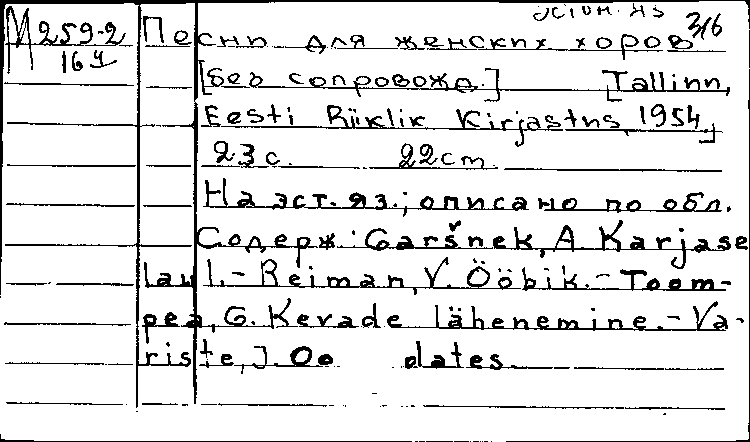 эстон. яз 316
М 259-2 Песни для женских хоров
16 ч [без сопровожд.] [Tallinn,
Eesti Riiklik Kirjastus, 1954.]
23 с. 22 cm.
На эст. яз.; описано по обл.
Содерж.: Garšnek, A. Karjase
laul. - Reiman, V. Ööbik. - Toom-
pea, G. Kevade lähenemine. - Va-
riste, J. Oo dates.